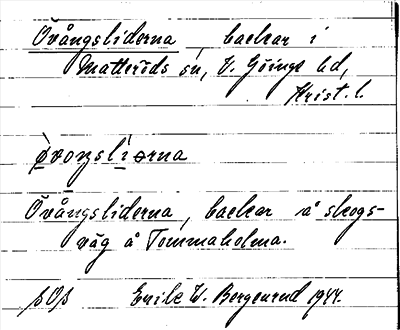 Övångsliderna backar i
Matteröds sn, V. Göinge hd,
Krist. l.
øvoŋsliərna
Övångsliderna, backar å skogs-
väg å Tommaholma.
Emile W. Bergenrud 1944.